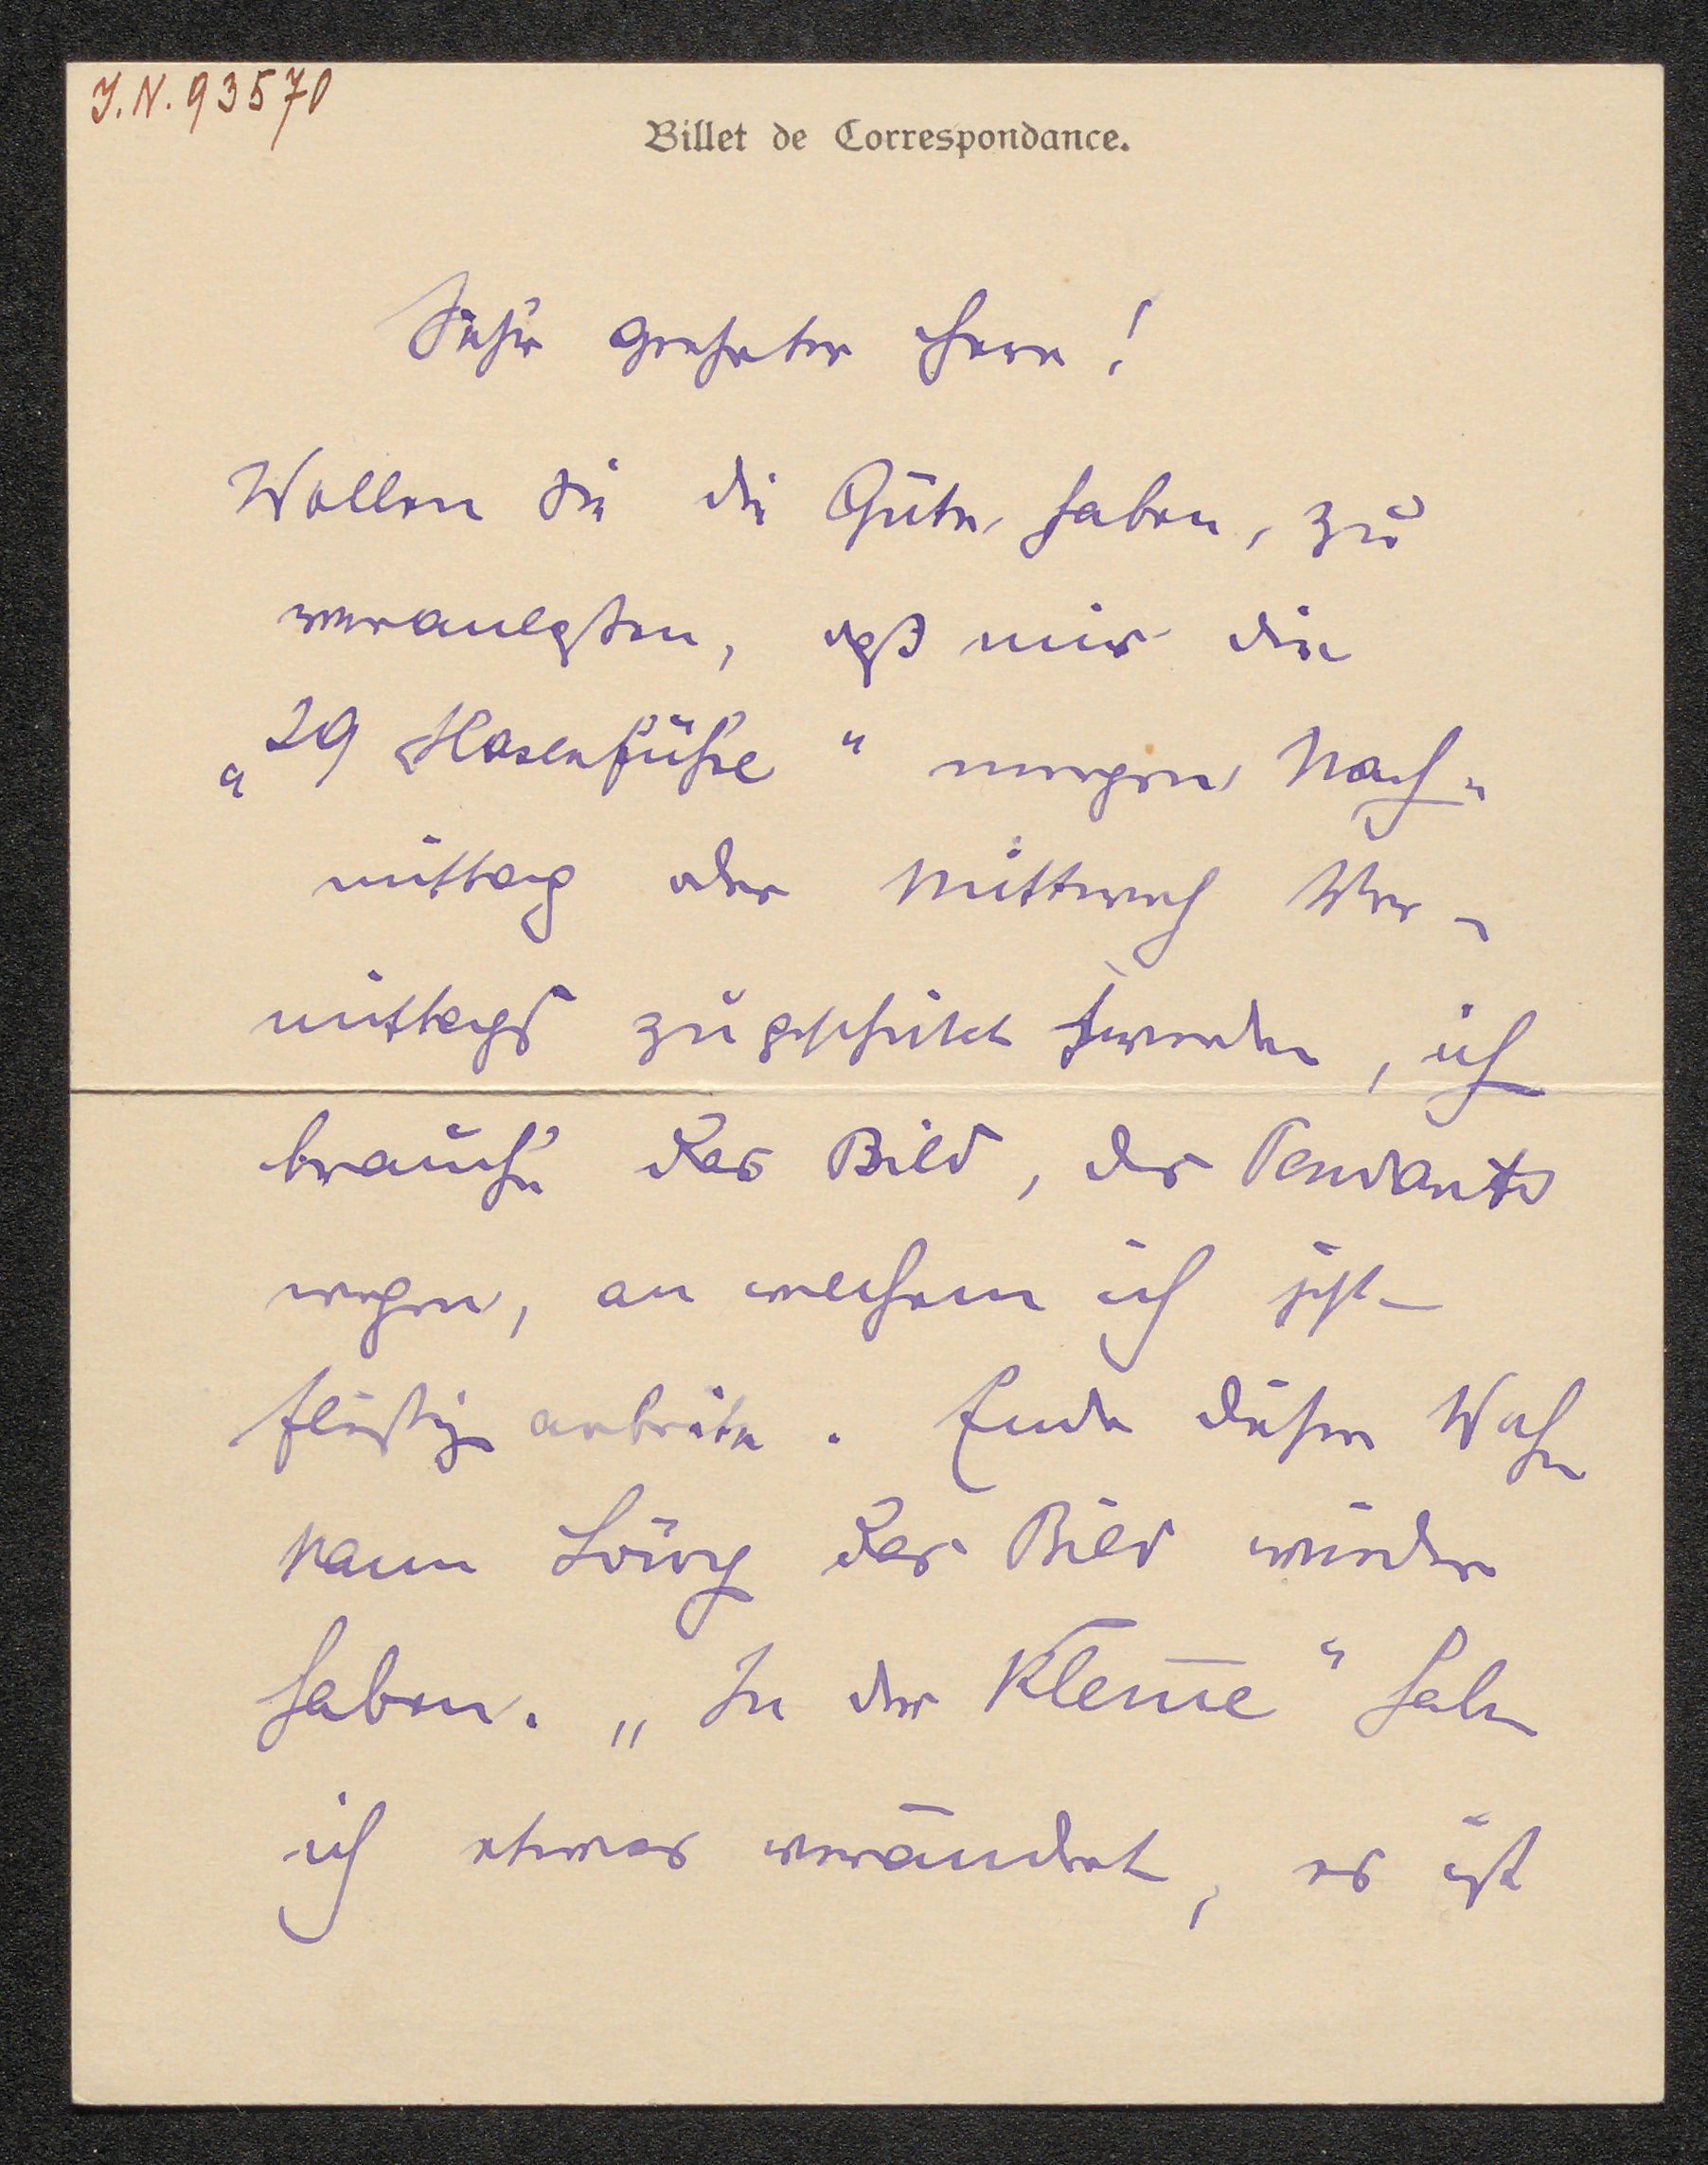 J.N. 93570
Billet de Correspondance.
Sehr geehrter Herr!
Wollen Sie die Güte haben, zu
veranlassen, daß mir die
„29 Hasenfüße“ morgen Nach-
mittag oder Mittwoch Vor-
mittags zugeschickt werden, ich
brauche das Bild, des Pendants
wegen, an welchem ich jetzt
fleißig arbeite. Ende dieser Woche
kann Löwy das Bild wieder
haben. „In der Klem̅e“ habe
ich etwas verändert, es ist